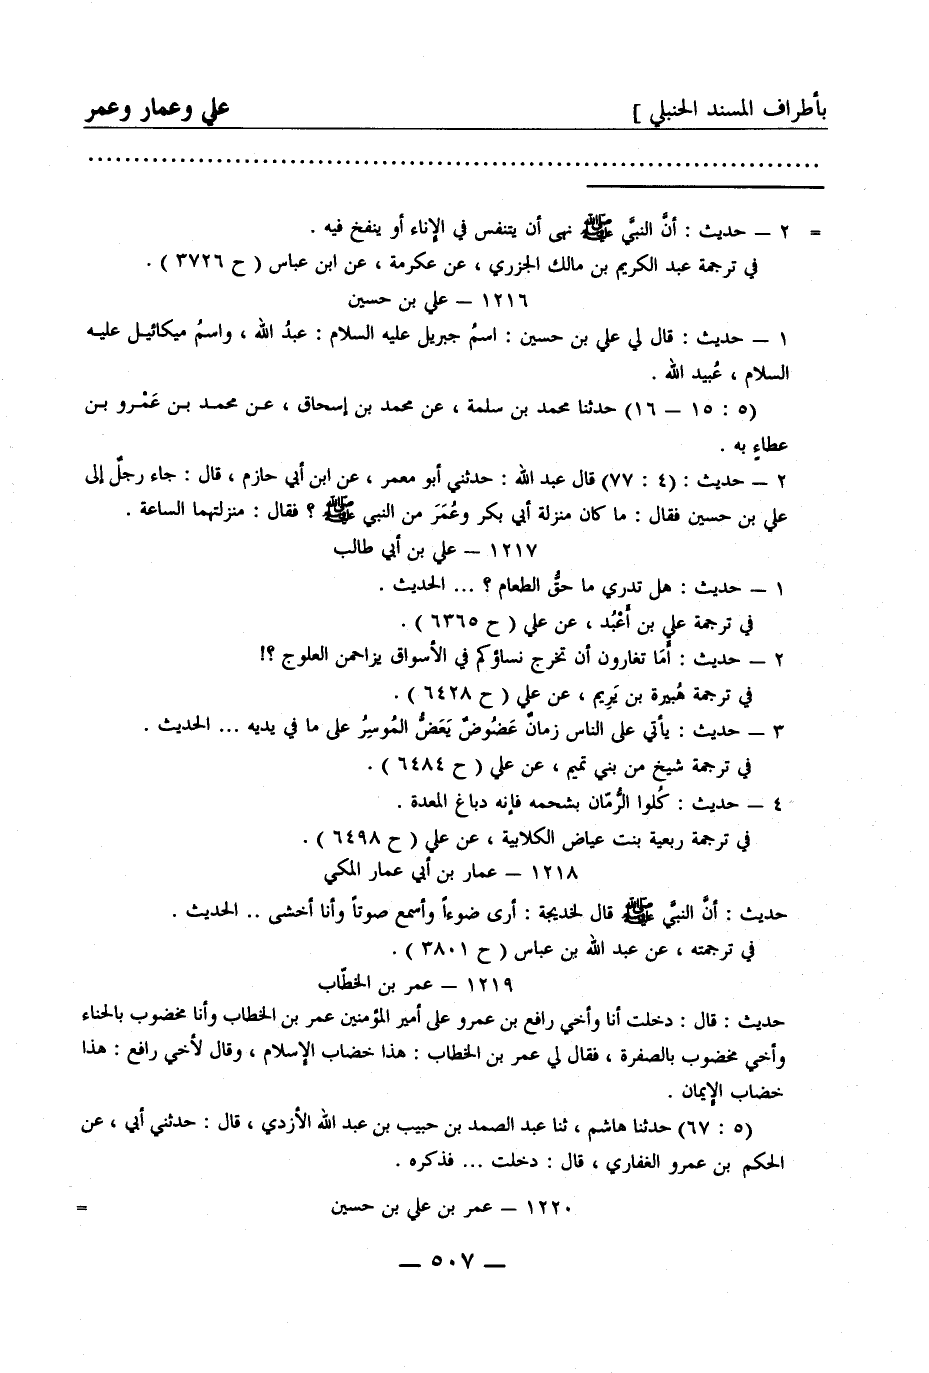 بأطراف المسند الحنبلي ] علي وعمار وعمر
................................................................................
= ٢ — حديث : أنَّ النبيَّ ﷺ نهى أن يتنفس في الإناء أو ينفخ فيه .
في ترجمة عبد الكريم بن مالك الجزري ، عن عكرمة ، عن ابن عباس ( ح ٣٧٢٦ ) .
١٢١٦ — علي بن حسين
١ — حديث : قال لي علي بن حسين : اسمُ جبريل عليه السلام : عبدُ الله ، واسمُ ميكائيل عليه
السلام ، عُبيد الله .
(٥ : ١٥ — ١٦) حدثنا محمد بن سلمة ، عن محمد بن إسحاق ، عن محمد بن عَمْرو بن
عطاءٍ به .
٢ — حديث : (٤ : ٧٧) قال عبد الله : حدثني أبو معمر ، عن ابن أبي حازم ، قال : جاء رجلٌ إلى
علي بن حسين فقال : ما كان منزلة أبي بكر وعُمَرَ من النبي ﷺ ؟ فقال : منزلتهما الساعة .
١٢١٧ — علي بن أبي طالب
١ — حديث : هل تدري ما حقُّ الطعام ؟ ... الحديث .
في ترجمة علي بن أَعْبُد ، عن علي ( ح ٦٣٦٥ ) .
٢ — حديث : أَمَا تغارون أن تخرج نساؤكم في الأسواق يزاحمن العلوج ؟!
في ترجمة هُبيرة بن يَرِيم ، عن علي ( ح ٦٤٢٨ ) .
٣ — حديث : يأتي على الناس زمانٌ عَضُوضٌ يَعَضُّ المُوسِرُ على ما في يديه ... الحديث .
في ترجمة شيخ من بني تميم ، عن علي ( ح ٦٤٨٤ ) .
٤ — حديث : كُلوا الرُّمّان بشحمه فإنه دباغ المعدة .
في ترجمة ربعية بنت عياض الكلابية ، عن علي ( ح ٦٤٩٨ ) .
١٢١٨ — عمار بن أبي عمار المكي
حديث : أنَّ النبيَّ ﷺ قال لخديجة : أرى ضوءاً وأسمع صوتاً وأنا أخشى .. الحديث .
في ترجمته ، عن عبد الله بن عباس ( ح ٣٨٠١ ) .
١٢١٩ — عمر بن الخطّاب
حديث : قال : دخلت أنا وأخي رافع بن عمرو على أمير المؤمنين عمر بن الخطاب وأنا مخضوب بالحناء
وأخي مخضوب بالصفرة ، فقال لي عمر بن الخطاب : هذا خضاب الإسلام ، وقال لأخي رافع : هذا
خضاب الإيمان .
(٥ : ٦٧) حدثنا هاشم ، ثنا عبد الصمد بن حبيب بن عبد الله الأزدي ، قال : حدثني أبي ، عن
الحكم بن عمرو الغفاري ، قال : دخلت ... فذكره .
١٢٢٠ — عمر بن علي بن حسين =
— ٥٠٧ —